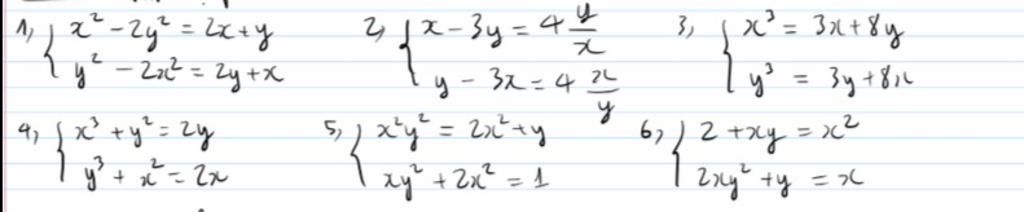 1, { x² - 2y² = 2x + y
y² - 2x² = 2y + x
2, { x - 3y = 4 y/x
y - 3x = 4 x/y
3, { x³ = 3x + 8y
y³ = 3y + 8x
4, { x³ + y² = 2y
y³ + x² = 2x
5, { x²y² = 2x² + y
xy² + 2x² = 1
6, { 2 + xy = x²
2xy² + y = x